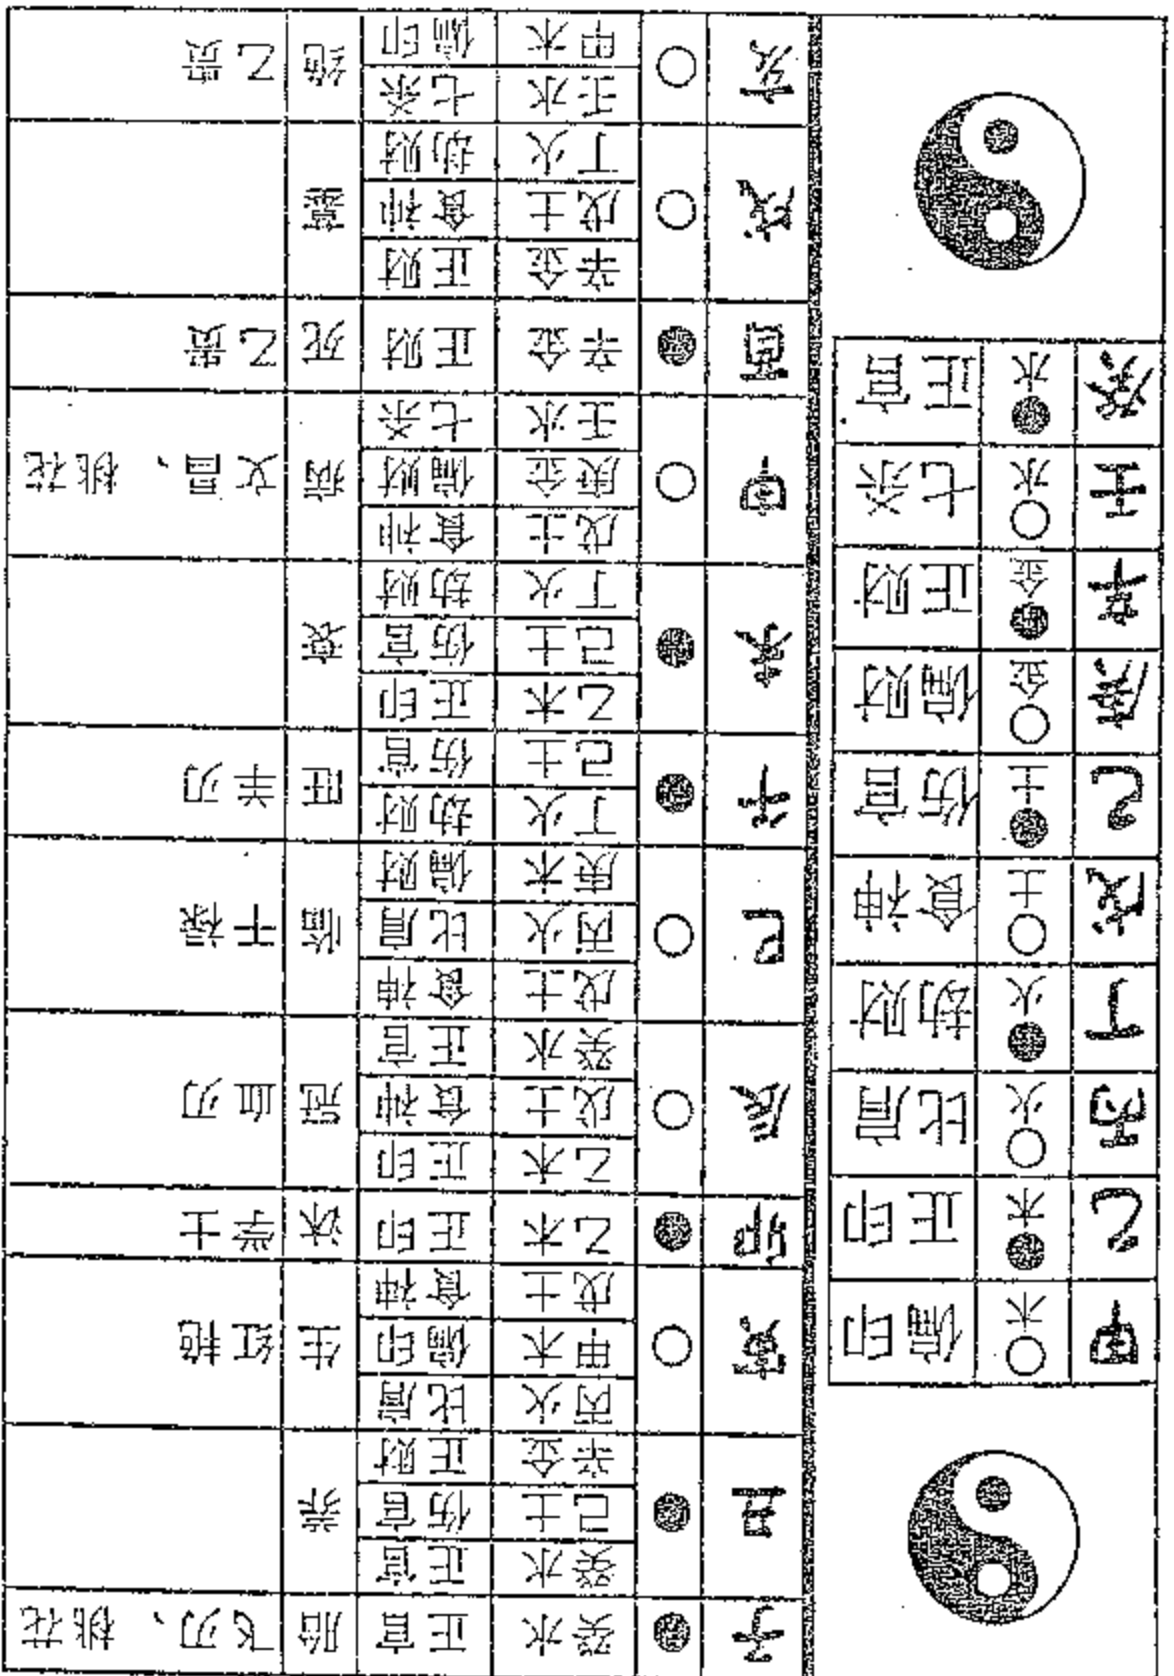 甲 木 偏印
乙 木 正印
丙 火 比肩
丁 火 劫财
戊 土 食神
己 土 伤官
庚 金 偏财
辛 金 正财
壬 水 七杀
癸 水 正官
子 癸水 正官 胎 飞刃、桃花
丑 癸水 正官 养
己土 伤官
辛金 正财
寅 丙火 比肩 生 红艳
甲木 偏印
戊土 食神
卯 乙木 正印 沐 学士
辰 乙木 正印 冠 血刃
戊土 食神
癸水 正官
巳 戊土 食神 临 干禄
丙火 比肩
庚木 偏财
午 丁火 劫财 旺 羊刃
己土 伤官
未 乙木 正印 衰
己土 伤官
丁火 劫财
申 戊土 食神 病 文昌、桃花
庚金 偏财
壬水 七杀
酉 辛金 正财 死 乙贵
戌 辛金 正财 墓
戊土 食神
丁火 劫财
亥 壬水 七杀 绝 乙贵
甲木 偏印